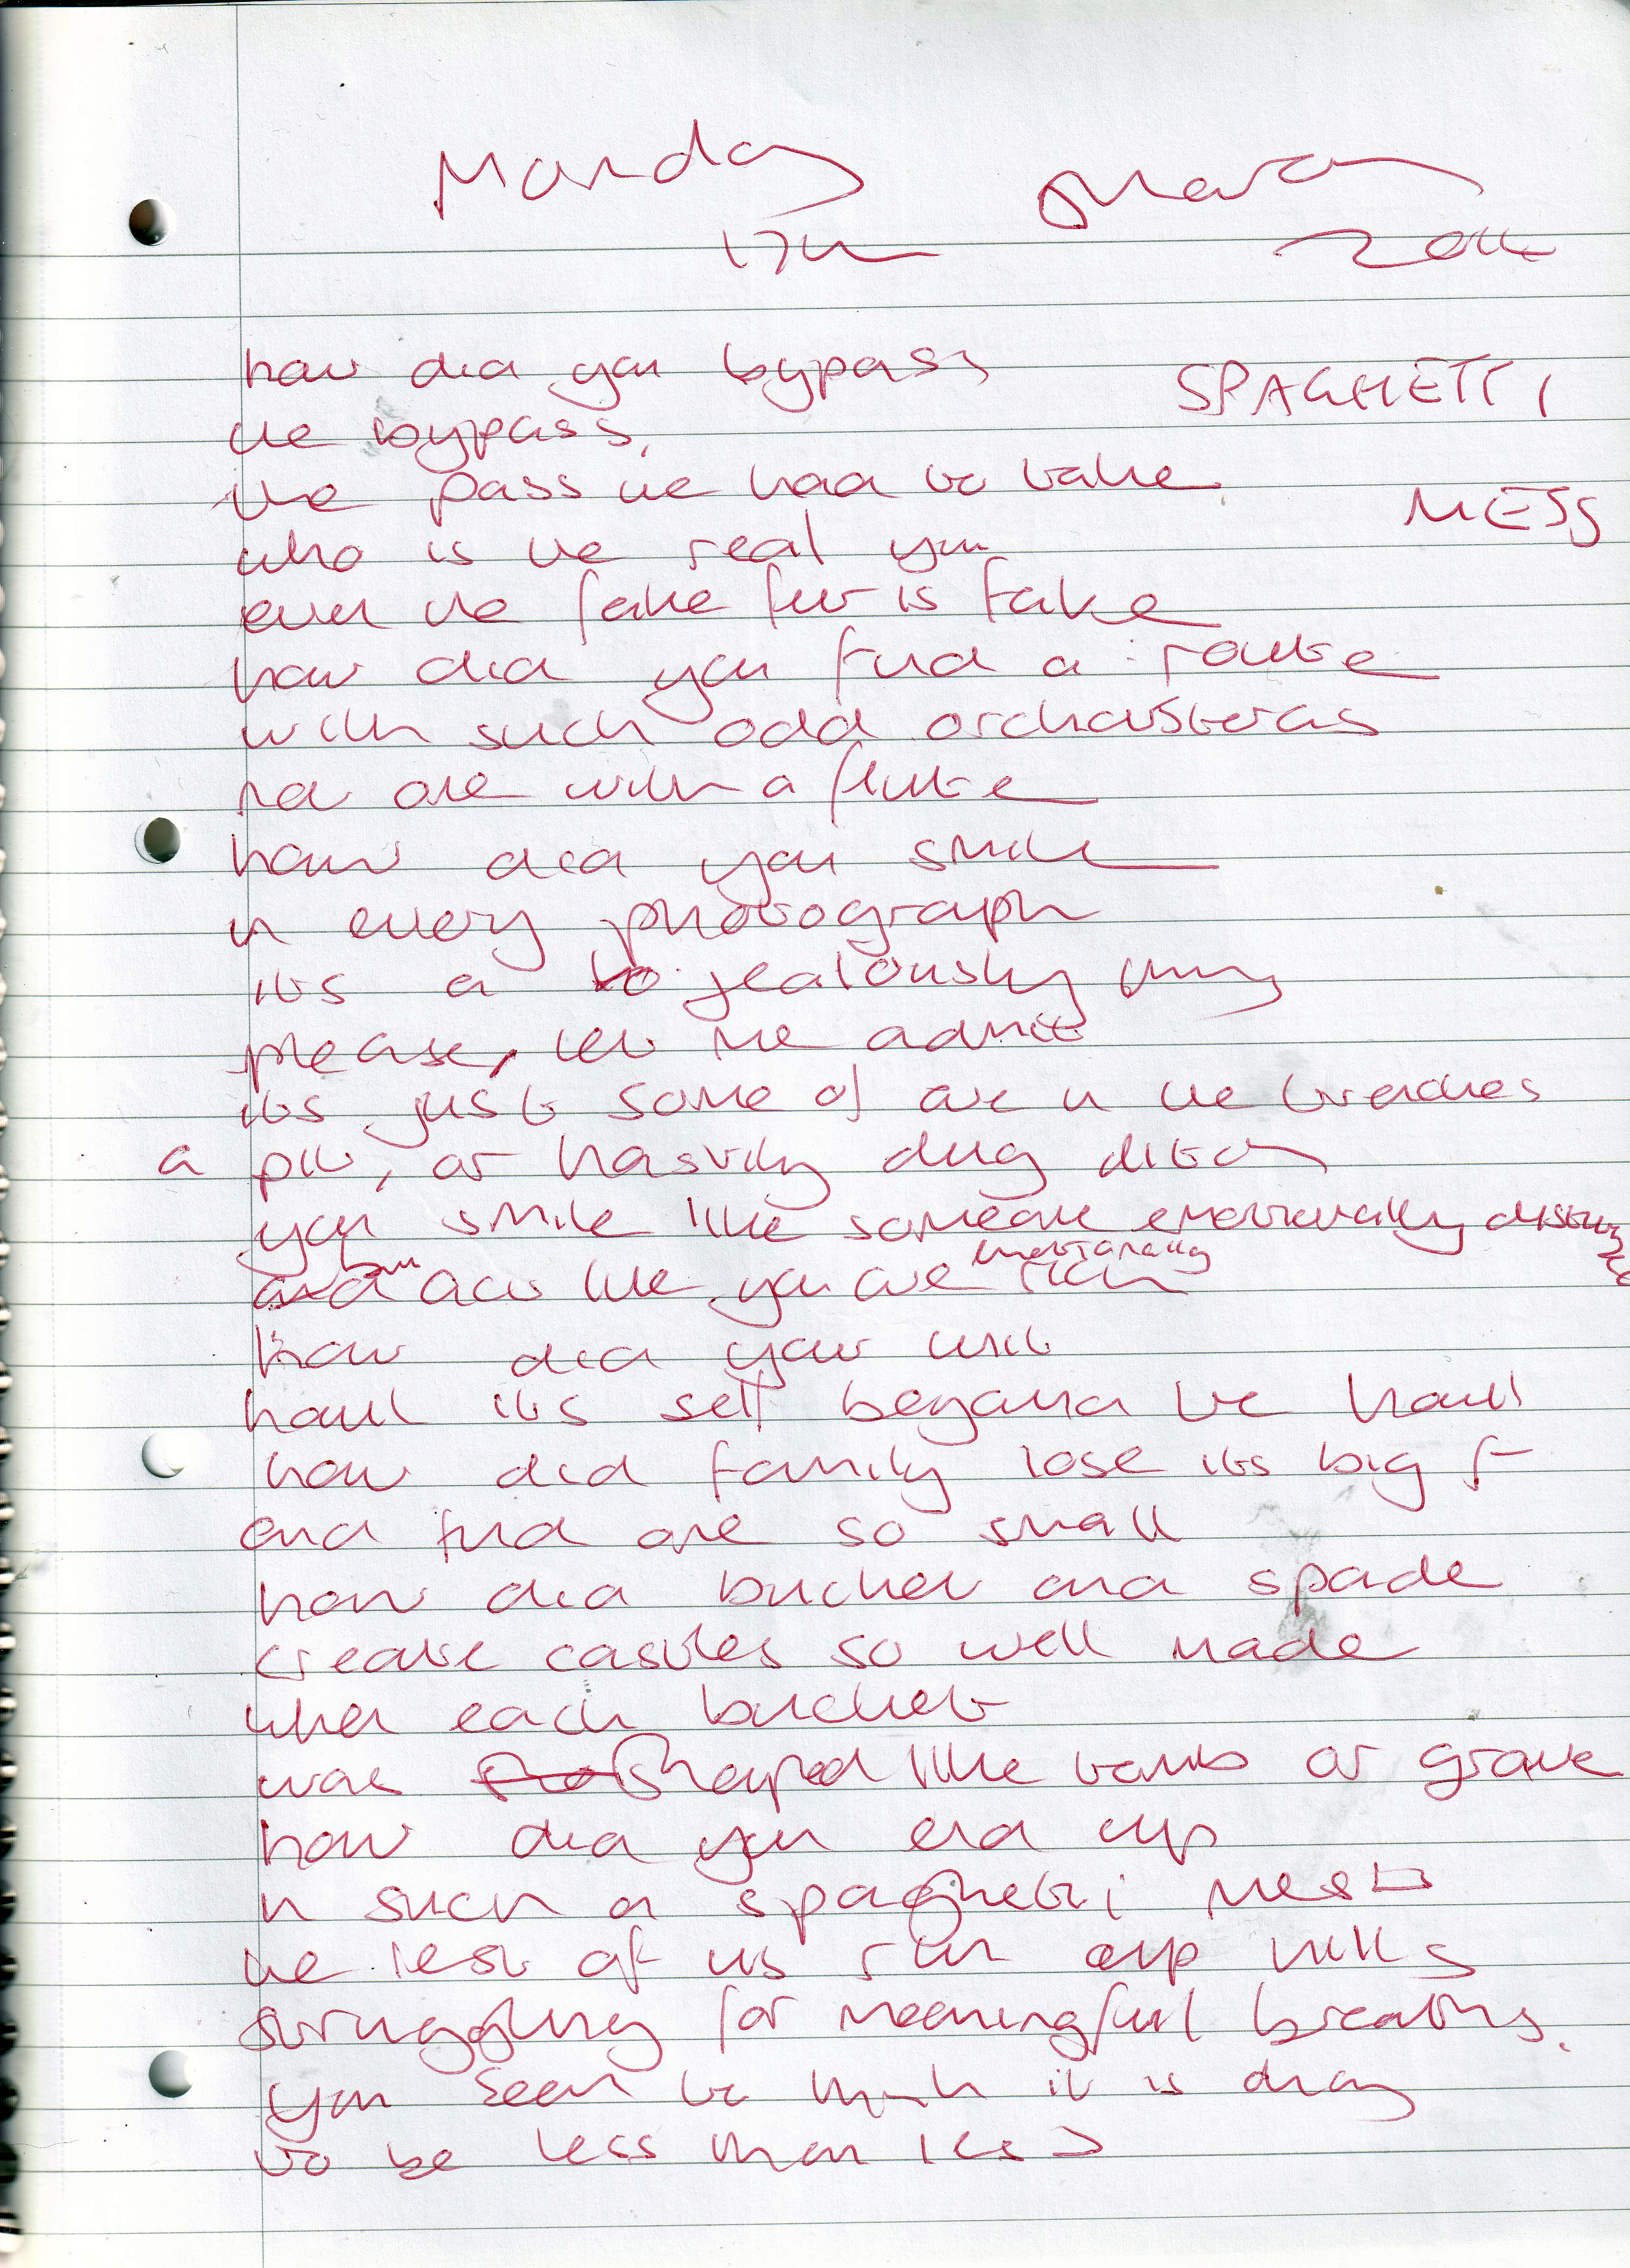 Monday
17th 2014
how did you bypass
SPAGHETTI
the bypass,
the pass we had to take
MESS
who is the real you
even the fake fur is fake
how did you find a route
with such odd orchaistras
not one with a flute
how did you smile
in every photograph
its a jealousy thing
please, let me admit
its just some of are in the trenches
a pit, or hastily dug ditch
you smile like someone emotionally
but act like you are emotionally rich
how did your unit
haul its self beyond the haul
how did family lose its big f
and find one so small
how did bucket and spade
create castles so well made
when each bucket
was shaped like tomb or grave
how did you end up
in such a spaghetti mess
the rest of us run up hills
struggling for meaningful breaths.
you seem to think it is okay
to be less than less